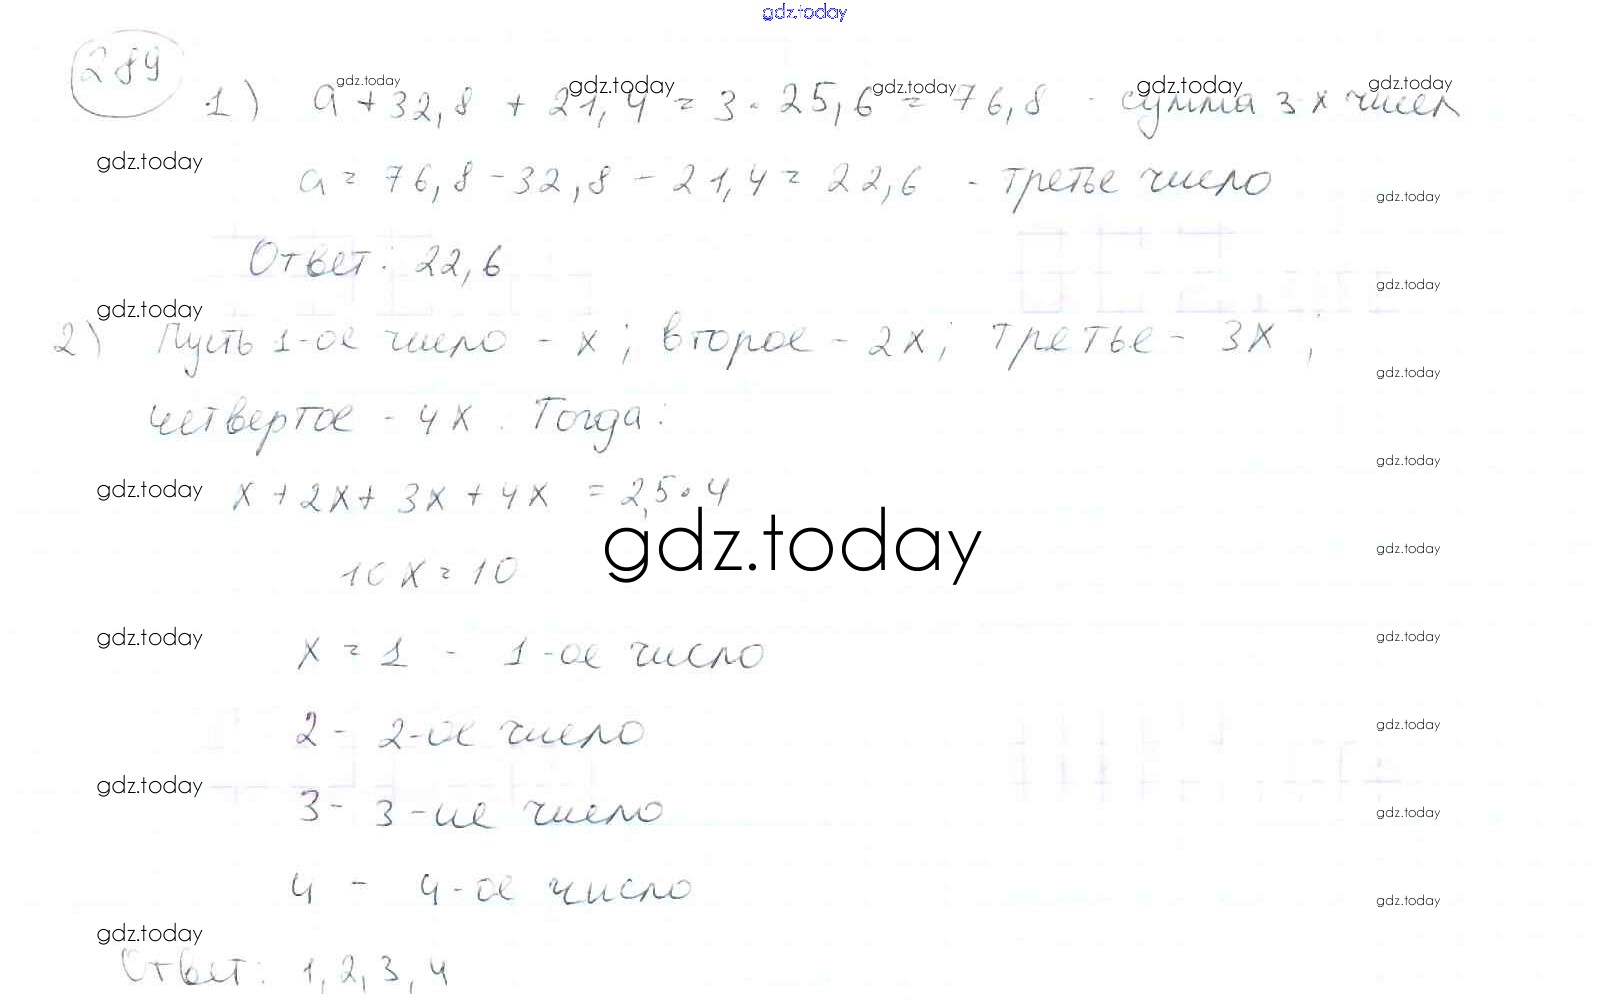 gdz.today
289
1) a + 32,8 + 21,4 = 3 · 25,6 = 76,8 - сумма 3-х чисел
gdz.today gdz.today gdz.today gdz.today gdz.today
gdz.today
a = 76,8 - 32,8 - 21,4 = 22,6 - третье число
gdz.today
Ответ: 22,6
gdz.today
gdz.today
2) Пусть 1-ое число - x; второе - 2x; третье - 3x;
gdz.today
четвертое - 4x. Тогда:
gdz.today
gdz.today
x + 2x + 3x + 4x = 2,5 · 4
gdz.today
gdz.today
10x = 10
gdz.today
gdz.today
x = 1 - 1-ое число
gdz.today
2 - 2-ое число
gdz.today
3 - 3-ие число
gdz.today
4 - 4-ое число
gdz.today
gdz.today
Ответ: 1, 2, 3, 4